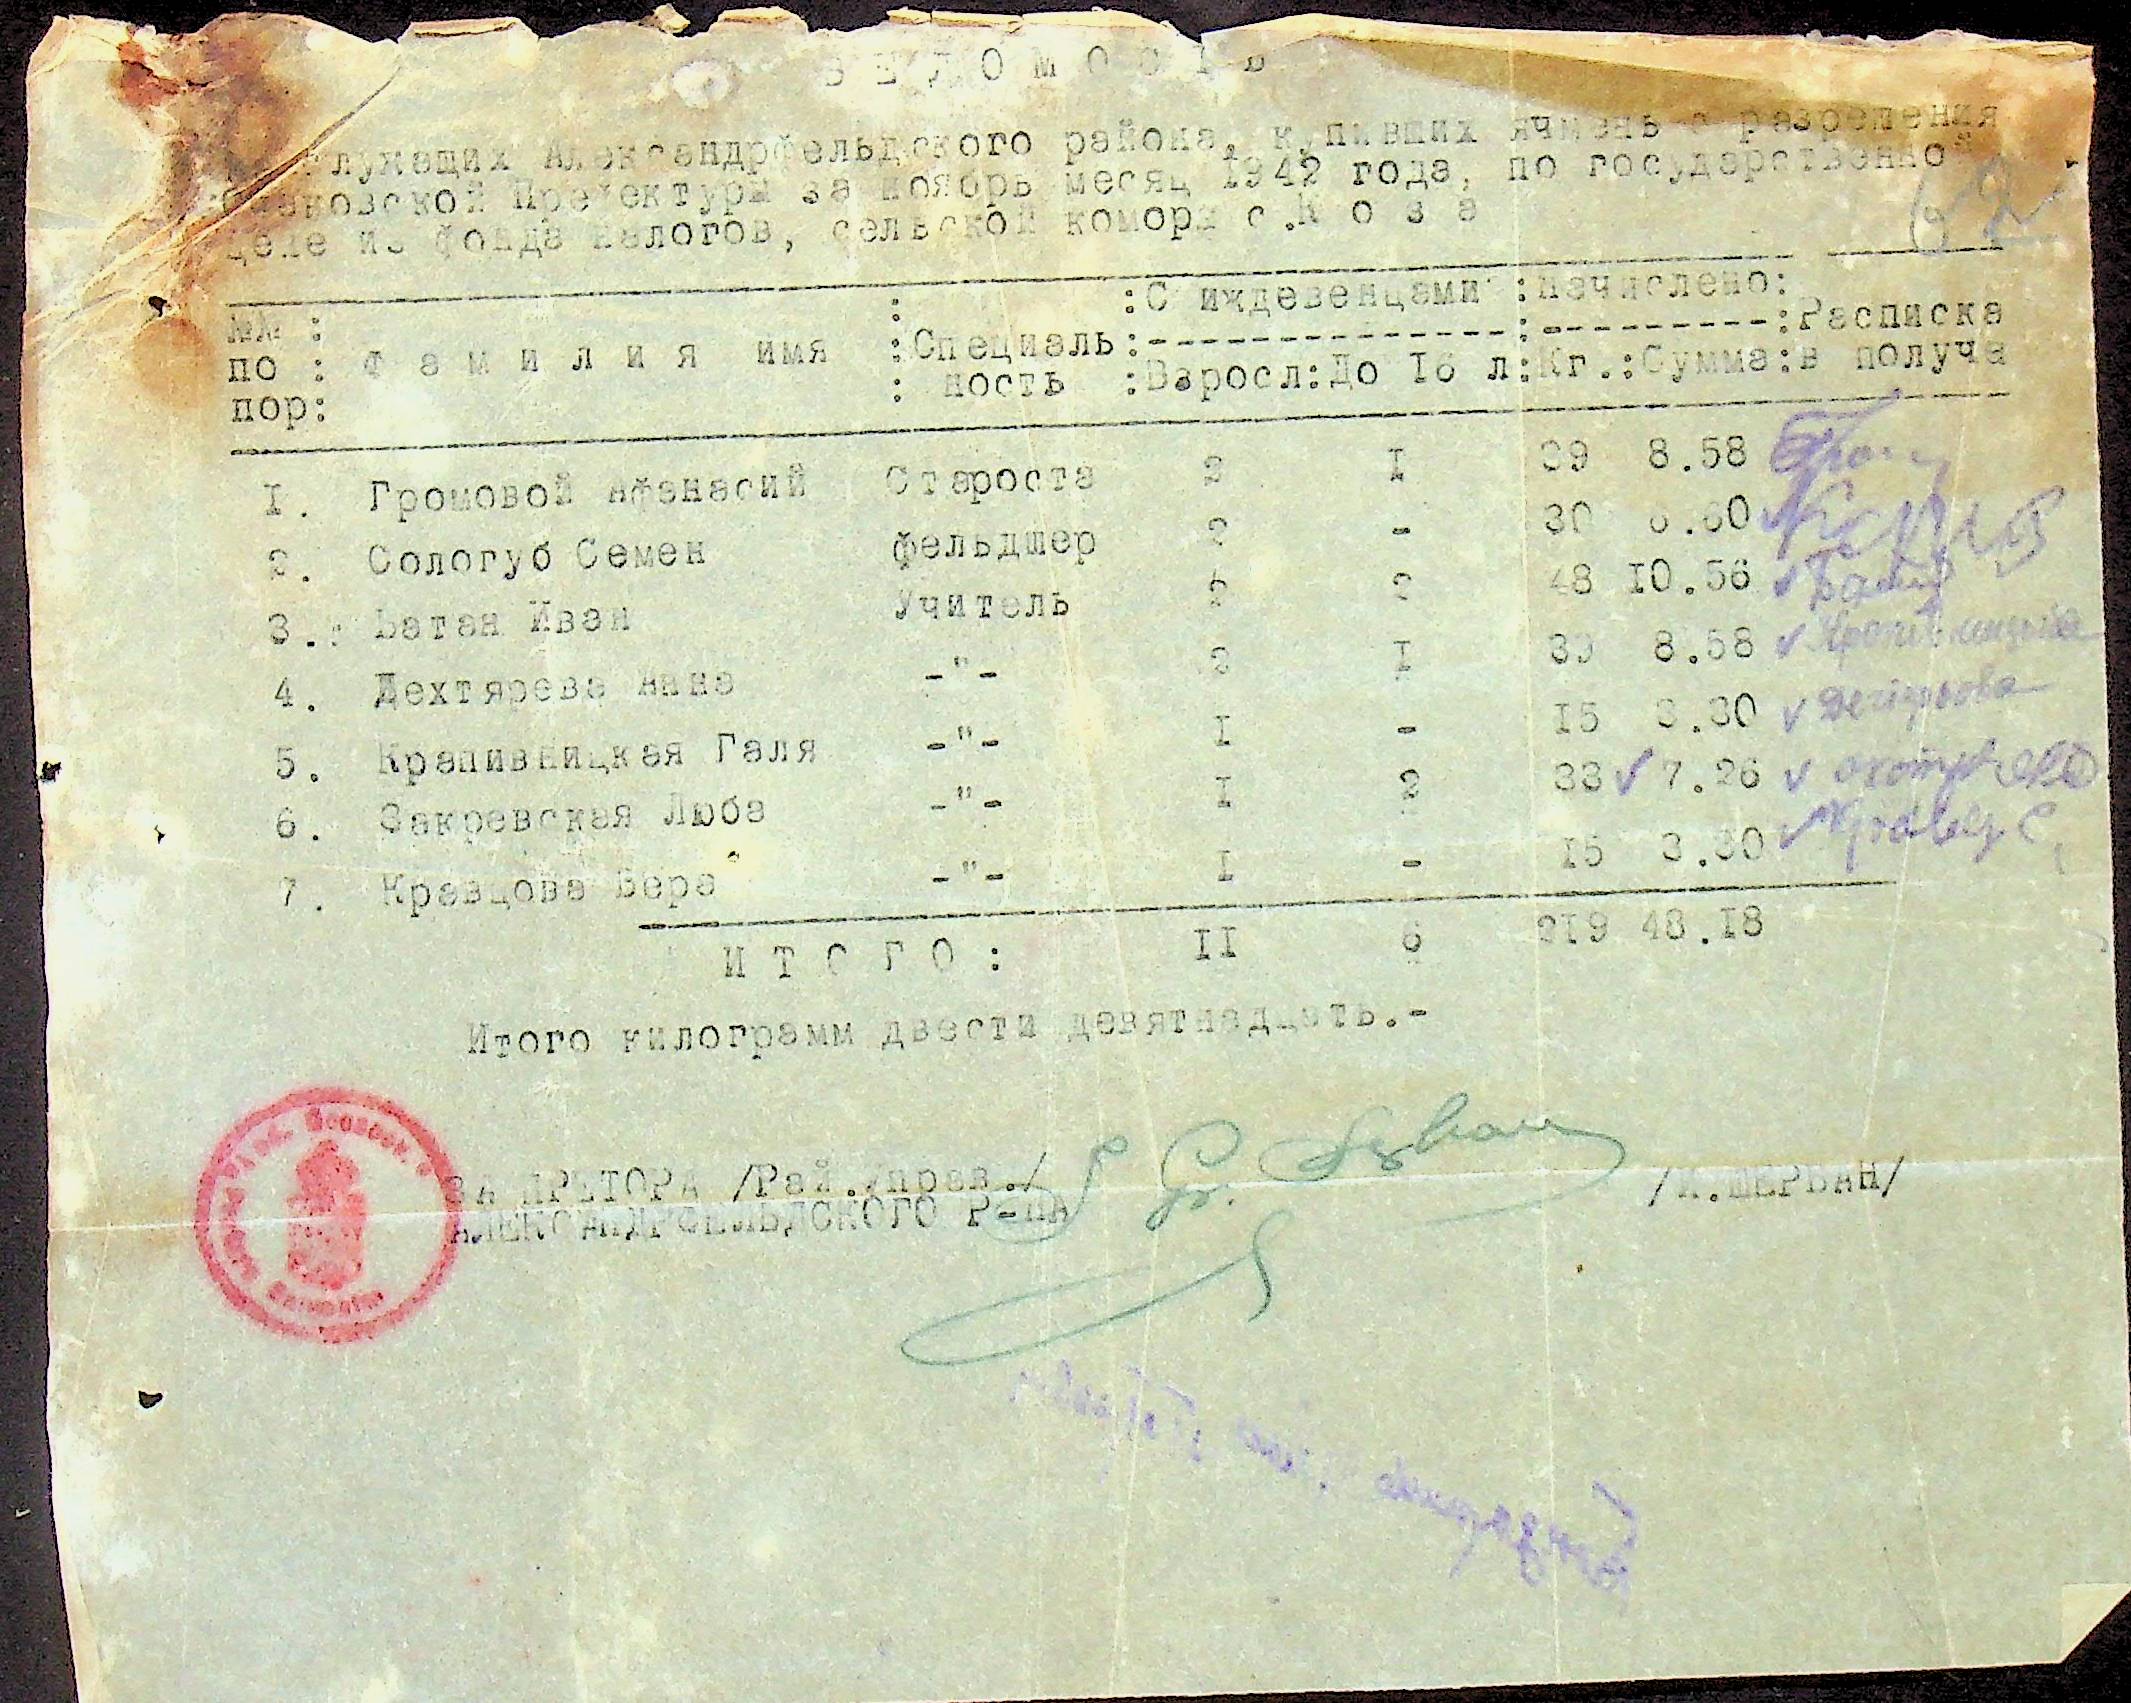 ВЕДОМОСТЬ
служащих Александрфельдского района, купивших ячмень с разрешения
Очаковской Префектуры за ноябрь месяц 1942 года, по государственной
цене из фонда налогов, сельской коморы с.Коза
62
№№ : : :С иждевенцами :Начислено:
по : Фамилия имя :Специаль:-------------:---------:Расписка
пор: : ность :Взросл:До 16 л:Кг.:Сумма:в получа
I. Громовой Афанасий Староста 2 I 39 8.58
2. Сологуб Семен фельдшер 2 - 30 6.60
3. Батан Иван Учитель 2 2 48 10.56
4. Дехтярева Анна -"- 2 I 39 8.58 Крапивницька
5. Крапивницкая Галя -"- I - 15 3.30 Дегтярьова
6. Закревская Люба -"- I 2 33 7.26
7. Кравцова Вера -"- I - 15 3.30
ИТОГО: II 6 219 48.18
Итого килограмм двести девятнадцать.-
ЗА ПРЕТОРА /Рай.Управ./ /И.ШЕРБАН/
АЛЕКСАНДРФЕЛЬДСКОГО Р-НА